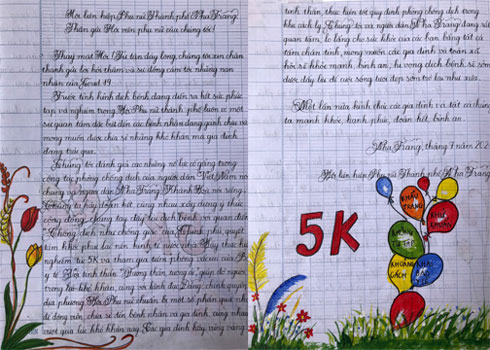 Hội liên hiệp Phụ nữ Thành phố Nha Trang!
Thân gửi Hội viên phụ nữ của chúng tôi!
Thay mặt Hội! Tự tận đáy lòng, chúng tôi xin chân
thành gửi lời hỏi thăm và sự đồng cảm tới những nạn
nhân của Covid 19.
Trước tình hình dịch bệnh đang diễn ra hết sức phức
tạp và nghiêm trọng, Hội Phụ nữ thành phố luôn có một
sự quan tâm đặc biệt đến các bệnh nhân đang gánh chịu và
mong muốn được chia sẻ những khó khăn mà gia đình
đang trải qua.
Chúng tôi đánh giá cao những nỗ lực cố gắng trong
công tác phòng chống dịch của người dân Việt Nam nói
chung và người dân Nha Trang, Khánh Hòa nói riêng.
Chúng ta hãy đoàn kết, cùng nhau xây dựng ý thức
cộng đồng, chung tay đẩy lùi dịch bệnh với quan điểm
"Chống dịch như chống giặc" của Chính phủ, quyết
tâm khắc phục lại nền kinh tế nước nhà. Hãy thực hiện
nghiêm túc 5K và tham gia tiêm phòng vacxin của Bộ
y tế. Với tinh thần "Tương thân, tương ái", giúp đỡ người
trong lúc khó khăn, cùng với lãnh đạo Đảng, chính quyền
địa phương, Hội Phụ nữ chuẩn bị một số phần quà nhỏ
để động viên, chia sẻ đến bệnh nhân và gia đình, cùng nhau
vượt qua lúc khó khăn này. Các gia đình hãy vững vàng
tinh thần, thực hiện tốt quy định phòng chống dịch trong
khu cách ly. Chúng tôi và người dân Nha Trang đang rất
quan tâm, lo lắng cho sức khỏe của các bạn bằng tất cả
tấm chân tình, mong muốn các gia đình và toàn xã
hội sẽ khỏe mạnh, bình an, hi vọng dịch bệnh sẽ sớm
được đẩy lùi để cuộc sống tươi đẹp sớm trở lại như xưa.
Một lần nữa kính chúc các gia đình và tất cả chúng
ta mạnh khỏe, hạnh phúc, đoàn kết, bình an.
Nha Trang, tháng 7 năm 202
Hội liên hiệp Phụ nữ Thành phố Nha Trang
5K
KHẨU
TRANG
KHỬ
KHUẨN
KHÔNG
TỤ TẬP
KHOẢNG
CÁCH
KHAI
BÁO
Y TẾ